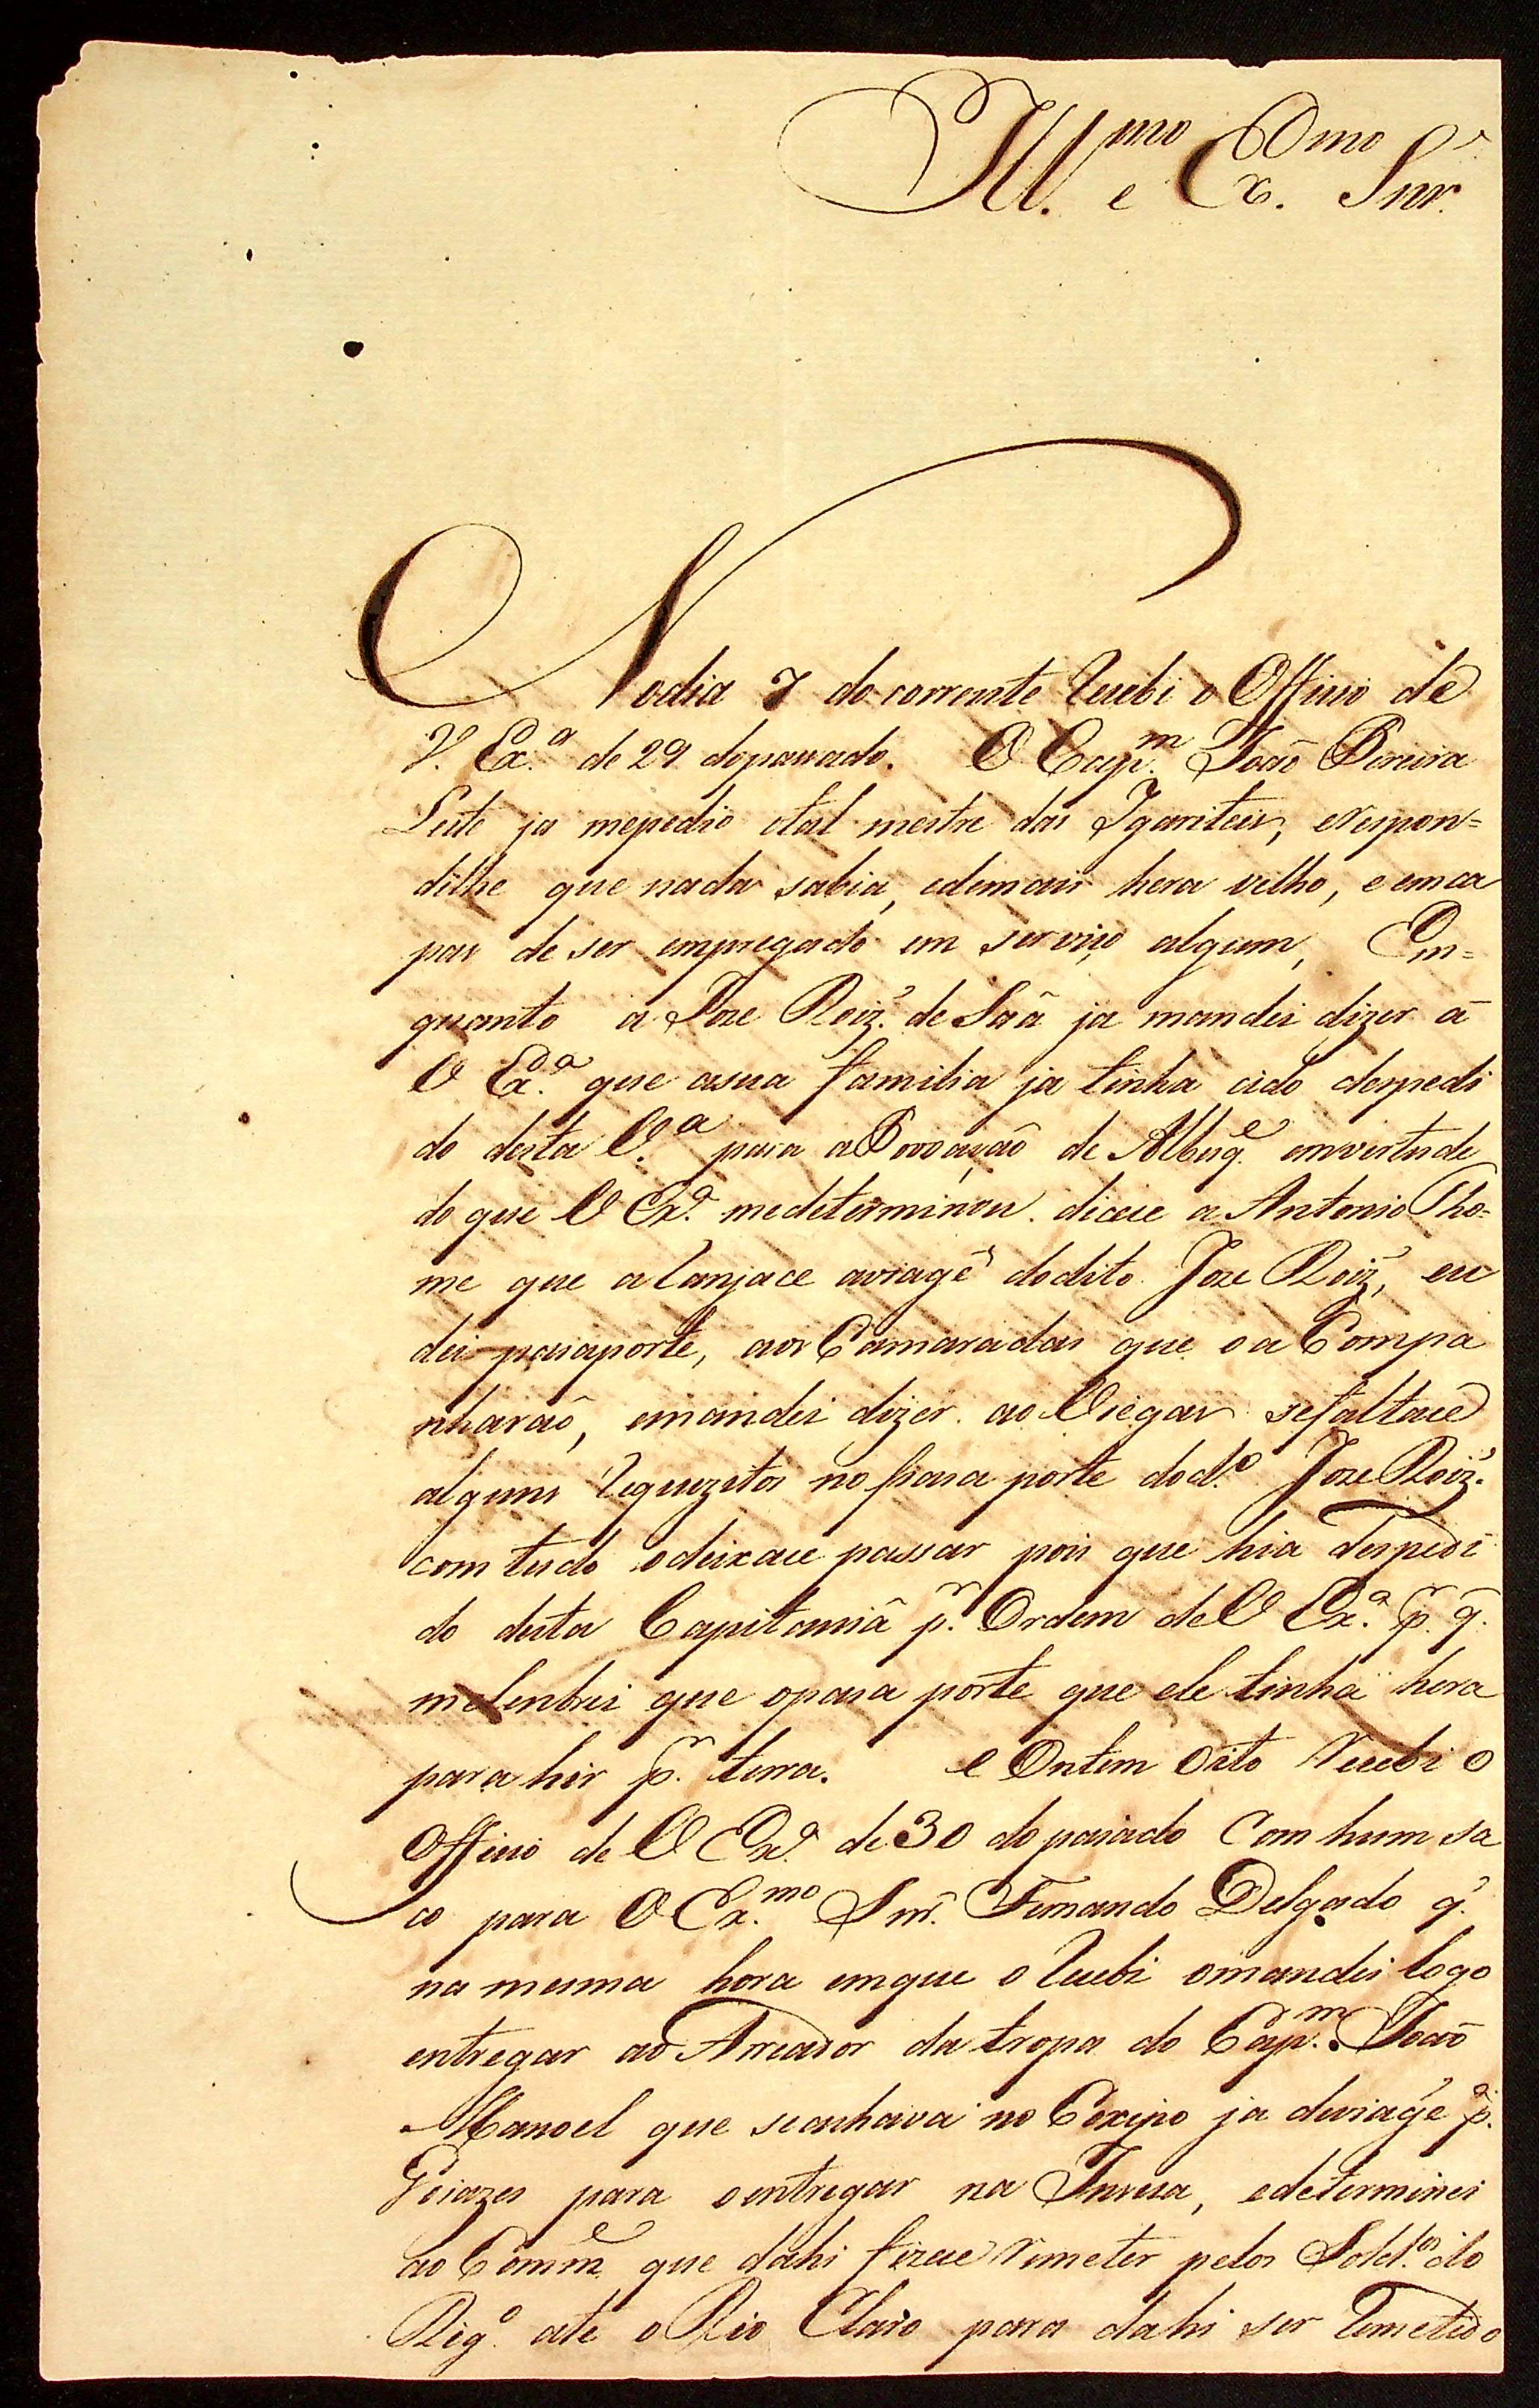 Ill.mo e Ex.mo Snr.
Nodia 7 do corrente Recebi o Officio de
V. Ex.a de 29 dopassado. O Cap.m João Pereira
Leite ja mepedio otal mestre das Igariteis, erespon=
dilhe que nada sabia, edemais hera velho, e emca
pas de ser empregado em serviço algum, Em=
quanto a Joze Roiz. de Saâ ja mandei dizer â
V Ex.a que asua familia ja tinha cido despedi
do desta V.a para aPovoação de Albuq.e emvertude
do que V Ex.a medeterminou. dicece a Antonio Tho=
me que aRanjace aviagê dodito Joze Roiz, eu
dei pasaporte, aos Camaradas que oaCompa
nharaõ, emandei dizer ao Viegas sefaltace
alguns Requezitos no pasaporte dod.o Joze Roiz.
com tudo odeixace passar pois que hia despedi
do desta Capitaniâ p.r Ordem deV Ex.a p.r q.
melenbrei que opasa porte que ele tinha hera
para hir p.r terra. e Ontem Oito Recebi o
Officio de V Ex.a de 30 do pasado Com hum sa
co para O Ex.mo Snr. Fernando Delgado q.
na mesma hora emque o Recebi omandei logo
entregar ao Arreador da tropa do Cap.m João
Manoel que seachava no Coxipo ja deviagê p.a
Goiazes para oentregar na Insua, edeterminei
ao Comm.e que dahi fizece Remeter pelos Sold.os do
Reg.o ate o Rio Claro para dahi ser Remetido